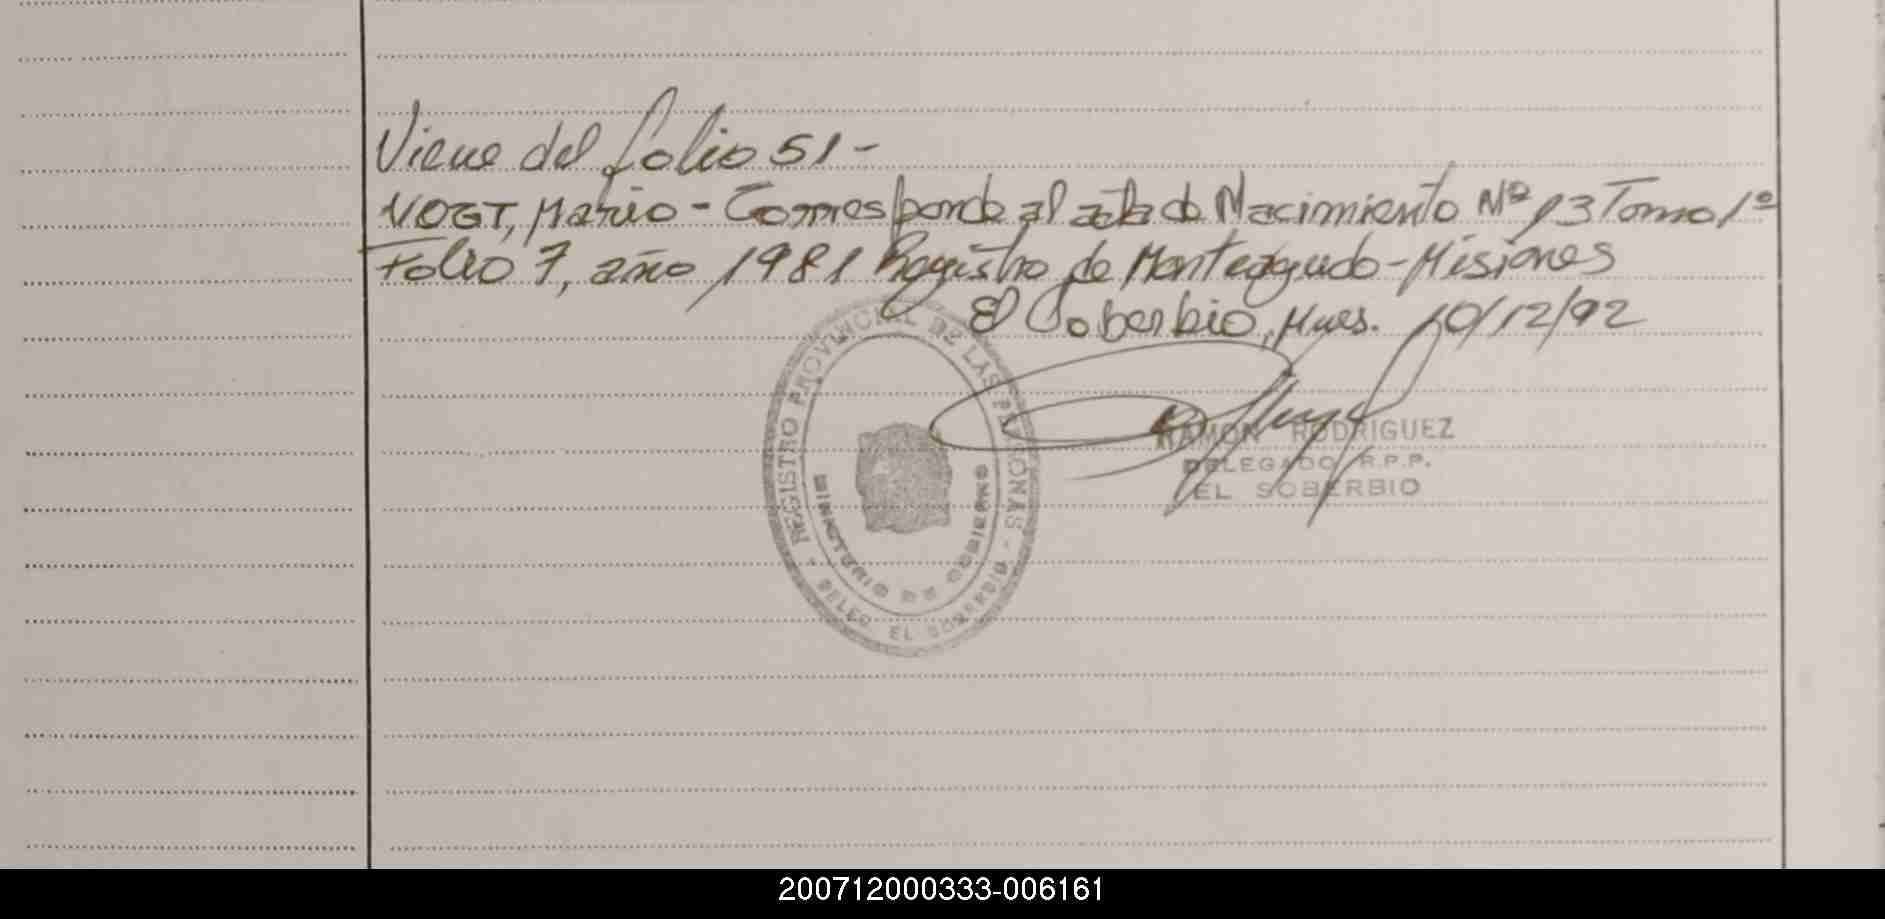 Viene del folio 51-
VOGT, Mario - Corresponde al acta de Nacimiento Nº 13 Tomo 1º
Folio 7, año 1981 Registro de Monteagudo - Misiones
El Soberbio, Mnes. 10/12/92
REGISTRO PROVINCIAL DE LAS PERSONAS
MINISTERIO DE GOBIERNO
- DELEG. EL SOBERBIO -
RAMON RODRIGUEZ
DELEGADO R.P.P.
EL SOBERBIO
200712000333-006161